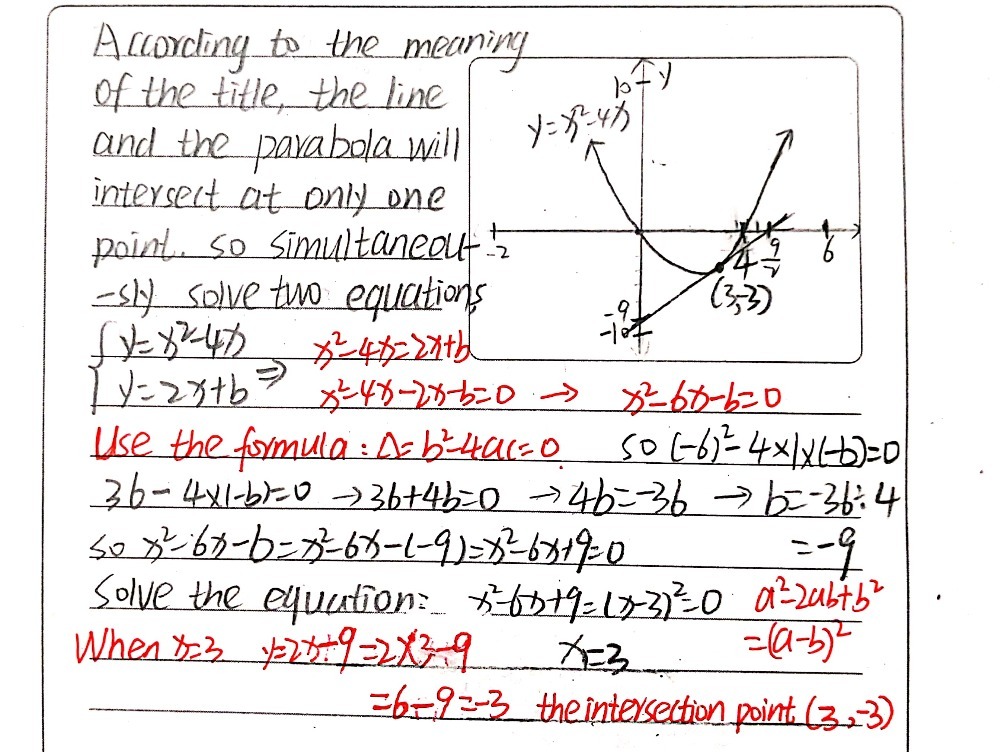 According to the meaning
of the title, the line
and the parabola will
intersect at only one
point. so simultaneou-
-sly solve two equations
10 y
y=x²-4x
-2 4 9/2 6
(3,-3)
-9
-10
{ y=x²-4x x²-4x=2x+b
y=2x+b ⇒ x²-4x-2x-b=0 → x²-6x-b=0
Use the formula: Δ=b²-4ac=0. so (-6)²-4×1×(-b)=0
36-4×(-b)=0 →36+4b=0 →4b=-36 → b=-36÷4
so x²-6x-b=x²-6x-(-9)=x²-6x+9=0 =-9
Solve the equation: x²-6x+9=(x-3)²=0 a²-2ab+b²
=(a-b)²
When x=3 y=2x-9=2×3-9 x=3
=6-9=-3 the intersection point (3,-3)